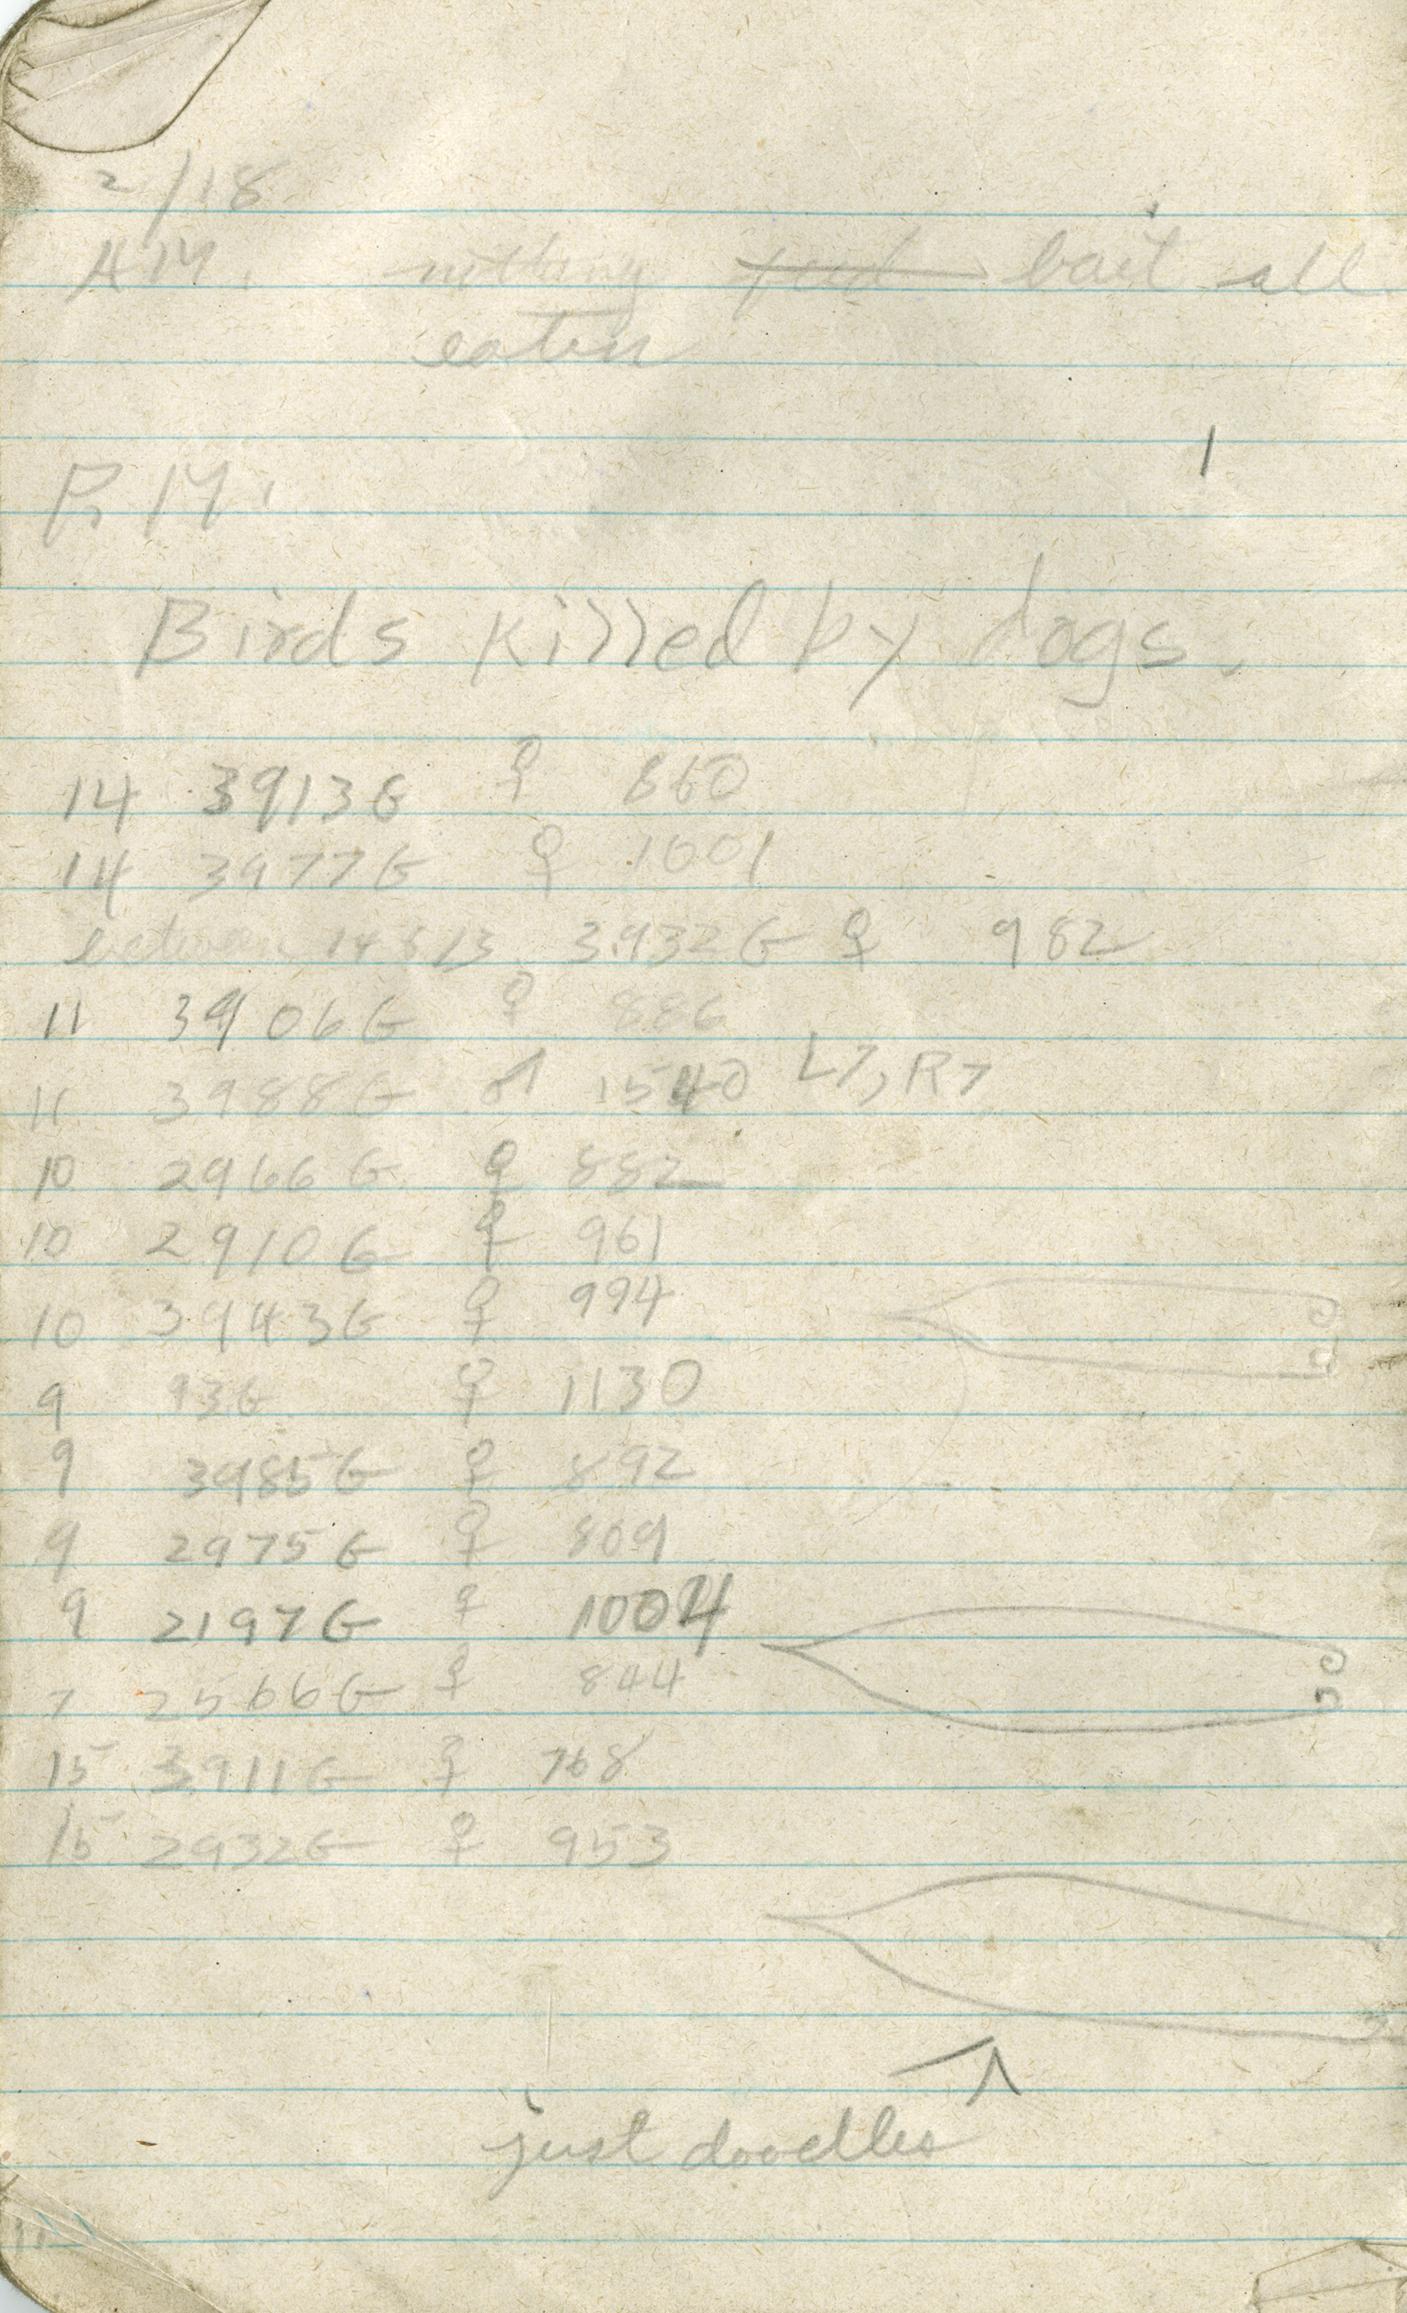 2/18
A.M. nothing feed bait all
eaten
1
P.M.
Birds killed by dogs.
14 3913G ♀ 860
14 3977G ♀ 1001
between 14 & 13 3932G ♀ 982
11 3906G ♀ 886
11 3988G ♂ 1540 L7, R7
10 2966G ♀ 882
10 2910G ♀ 961
10 3943G ♀ 994
9 93G ♀ 1130
9 3985G ♀ 892
9 2975G ♀ 809
9 2197G ♀ 1004
7 2566G ♀ 844
15 3911G ♀ 768
15 2932G ♀ 953
just doodles